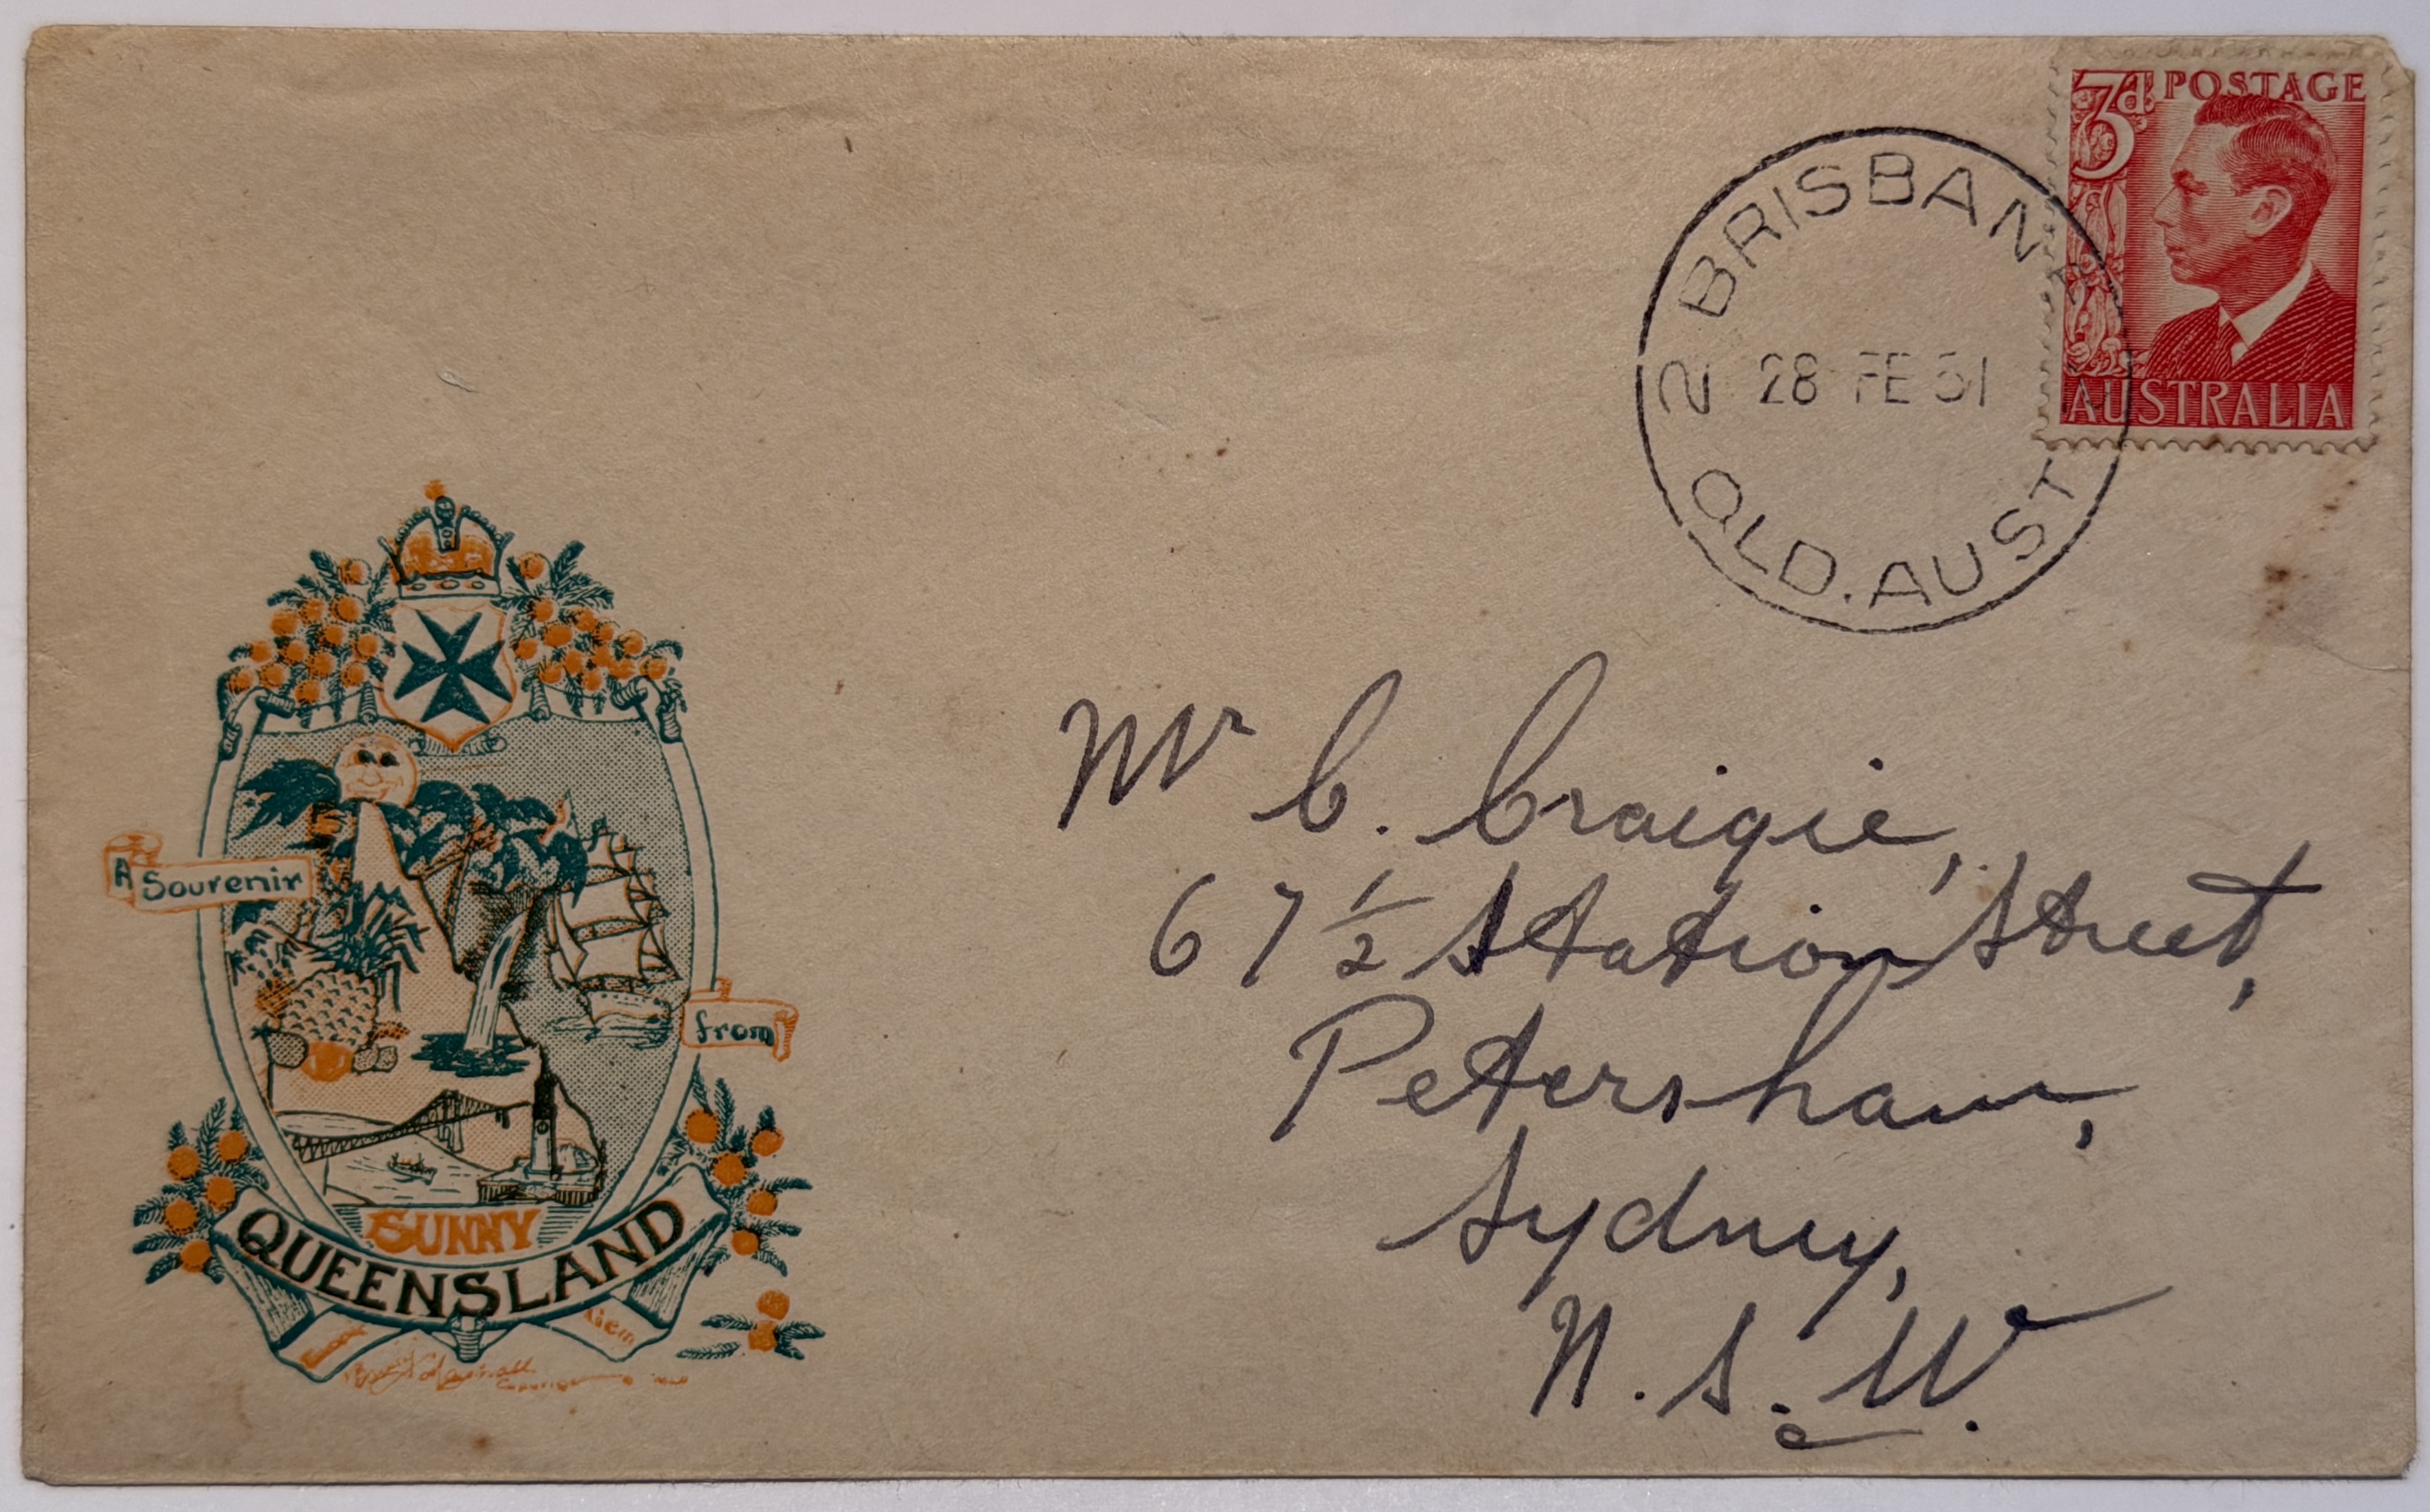 3d POSTAGE
AUSTRALIA
2 BRISBANE
28 FE 51
QLD. AUST
A Souvenir
from
SUNNY
QUEENSLAND
Mr C. Craigie,
67 1/2 Station Street,
Petersham,
Sydney,
N.S.W.